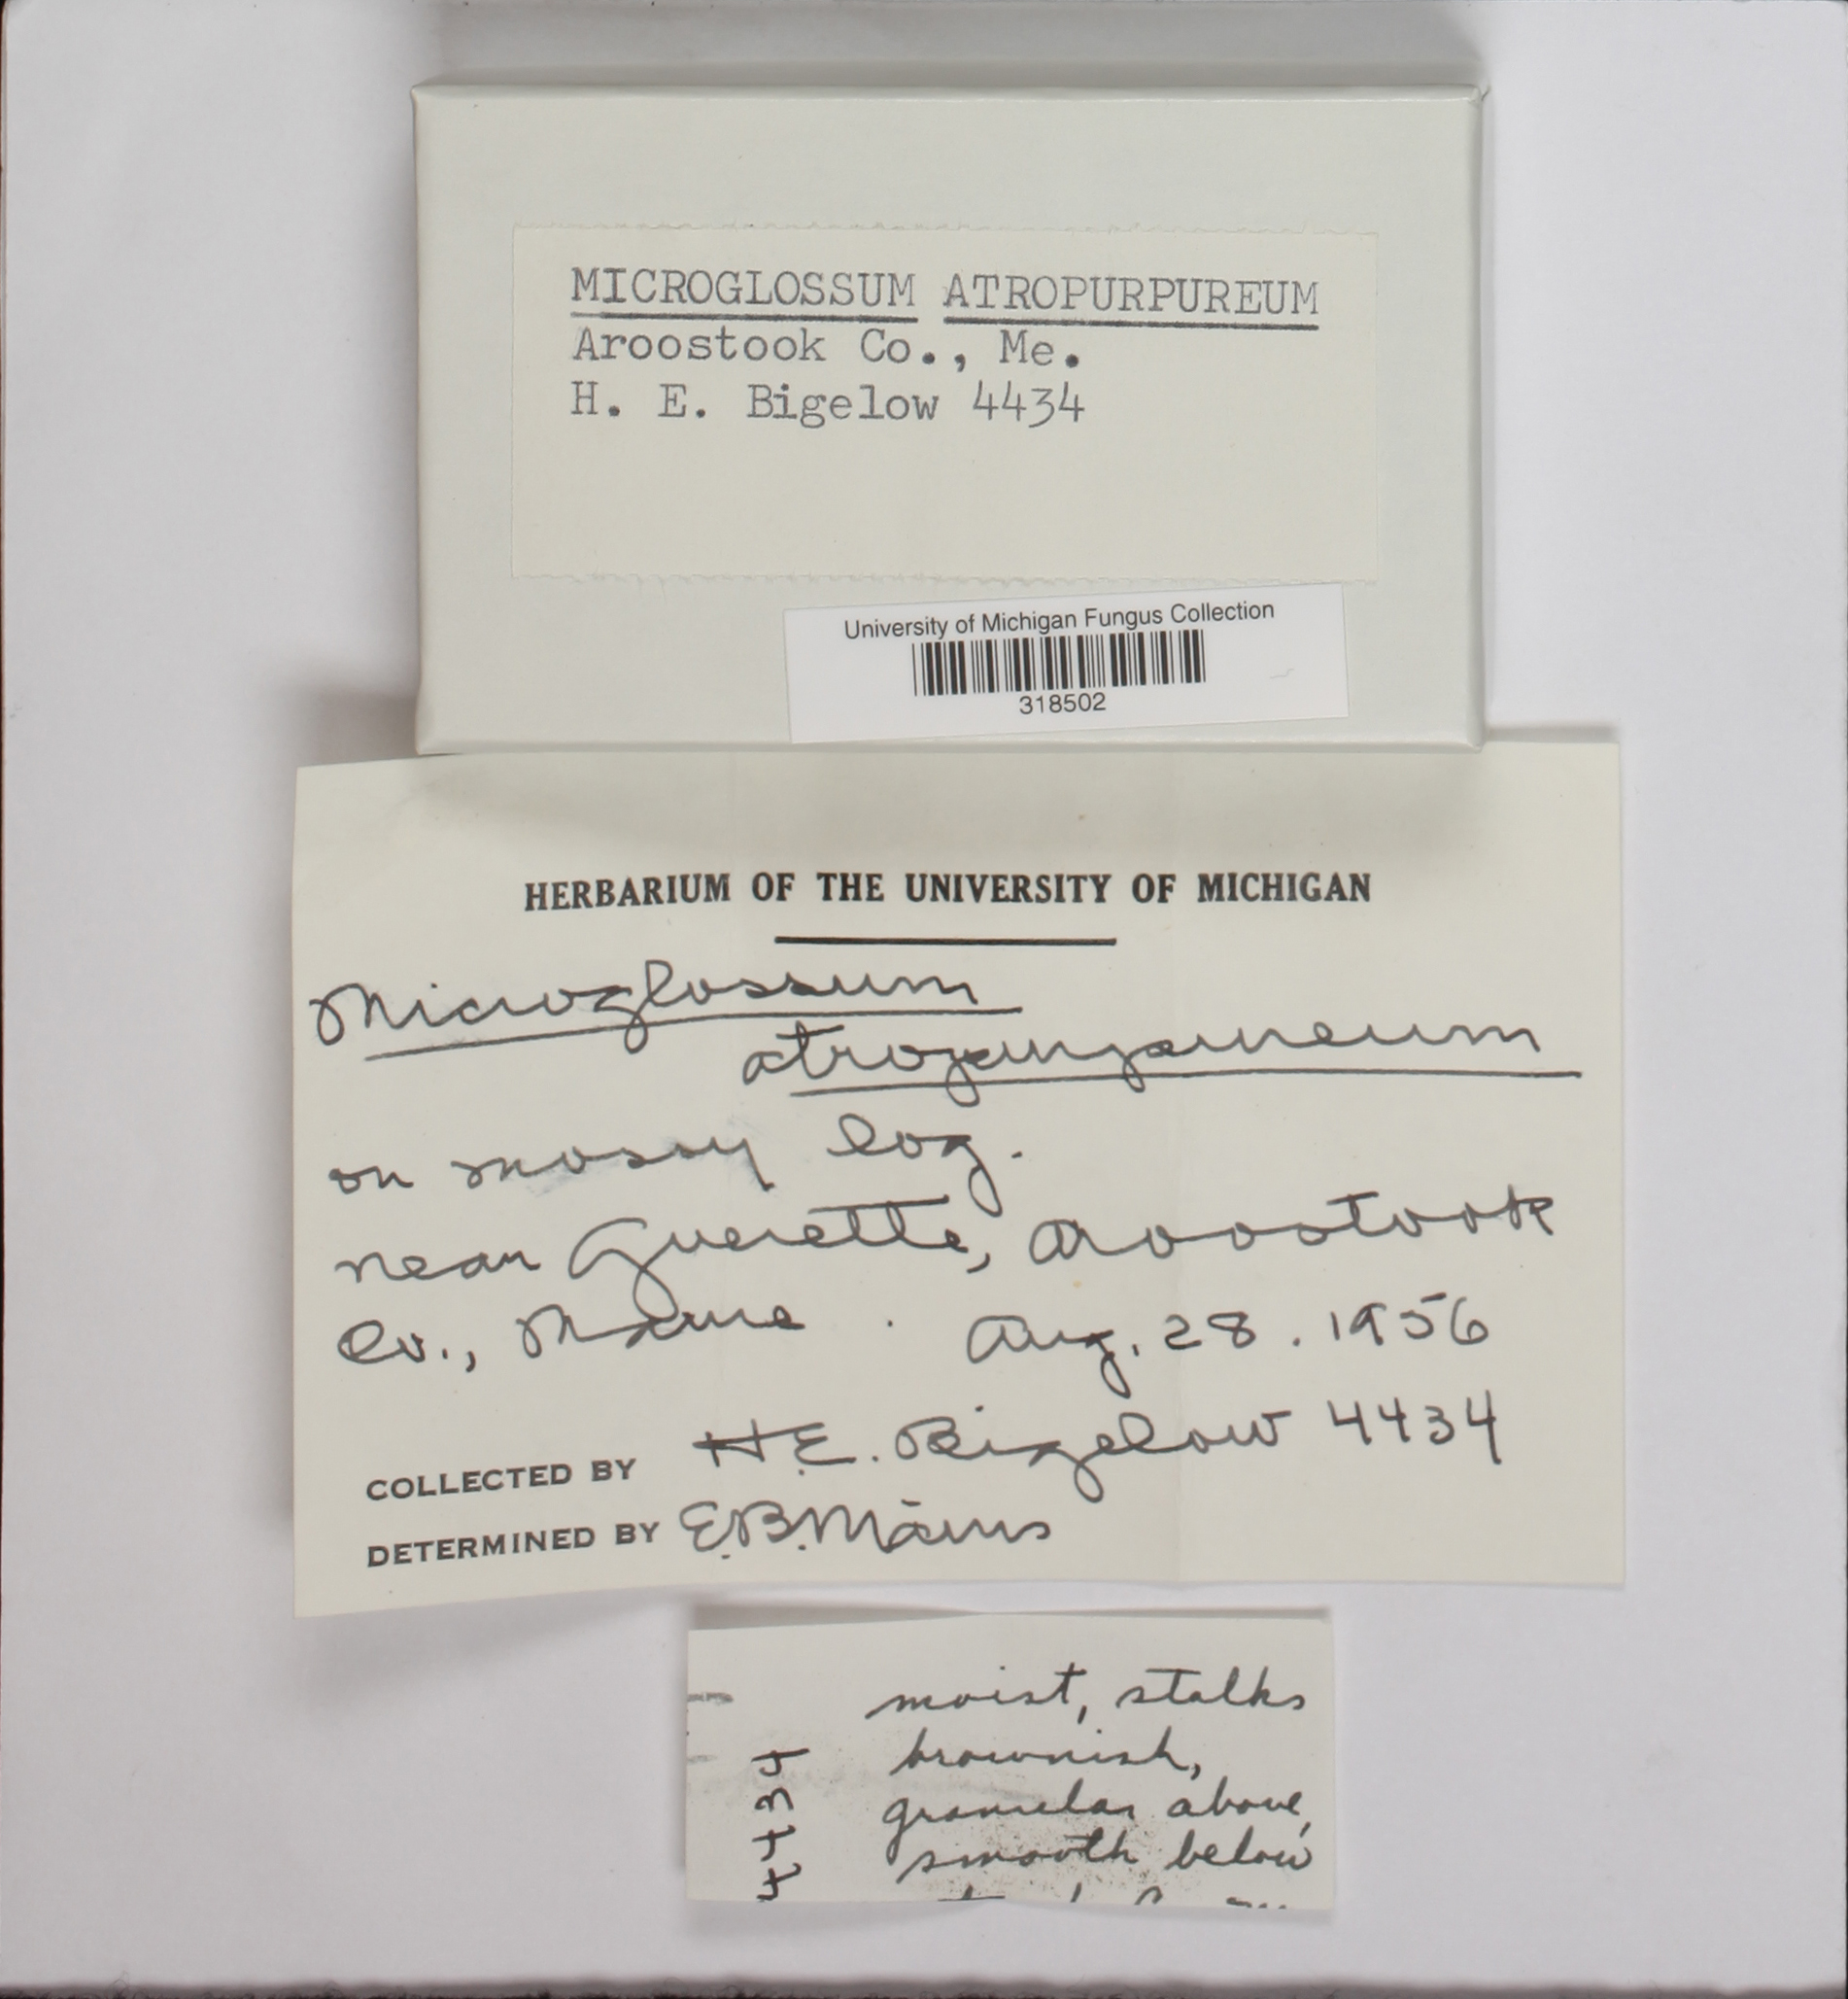 MICROGLOSSUM ATROPURPUREUM
Aroostook Co., Me.
H. E. Bigelow 4434
University of Michigan Fungus Collection
318502
HERBARIUM OF THE UNIVERSITY OF MICHIGAN
Microglossum
atropurpureum
on mossy log.
near Guerette, Aroostook
Co., Maine. Aug. 28. 1956
COLLECTED BY H.E. Bigelow 4434
DETERMINED BY E.B. Mains
moist, stalks
brownish,
granular above,
smooth below
4434